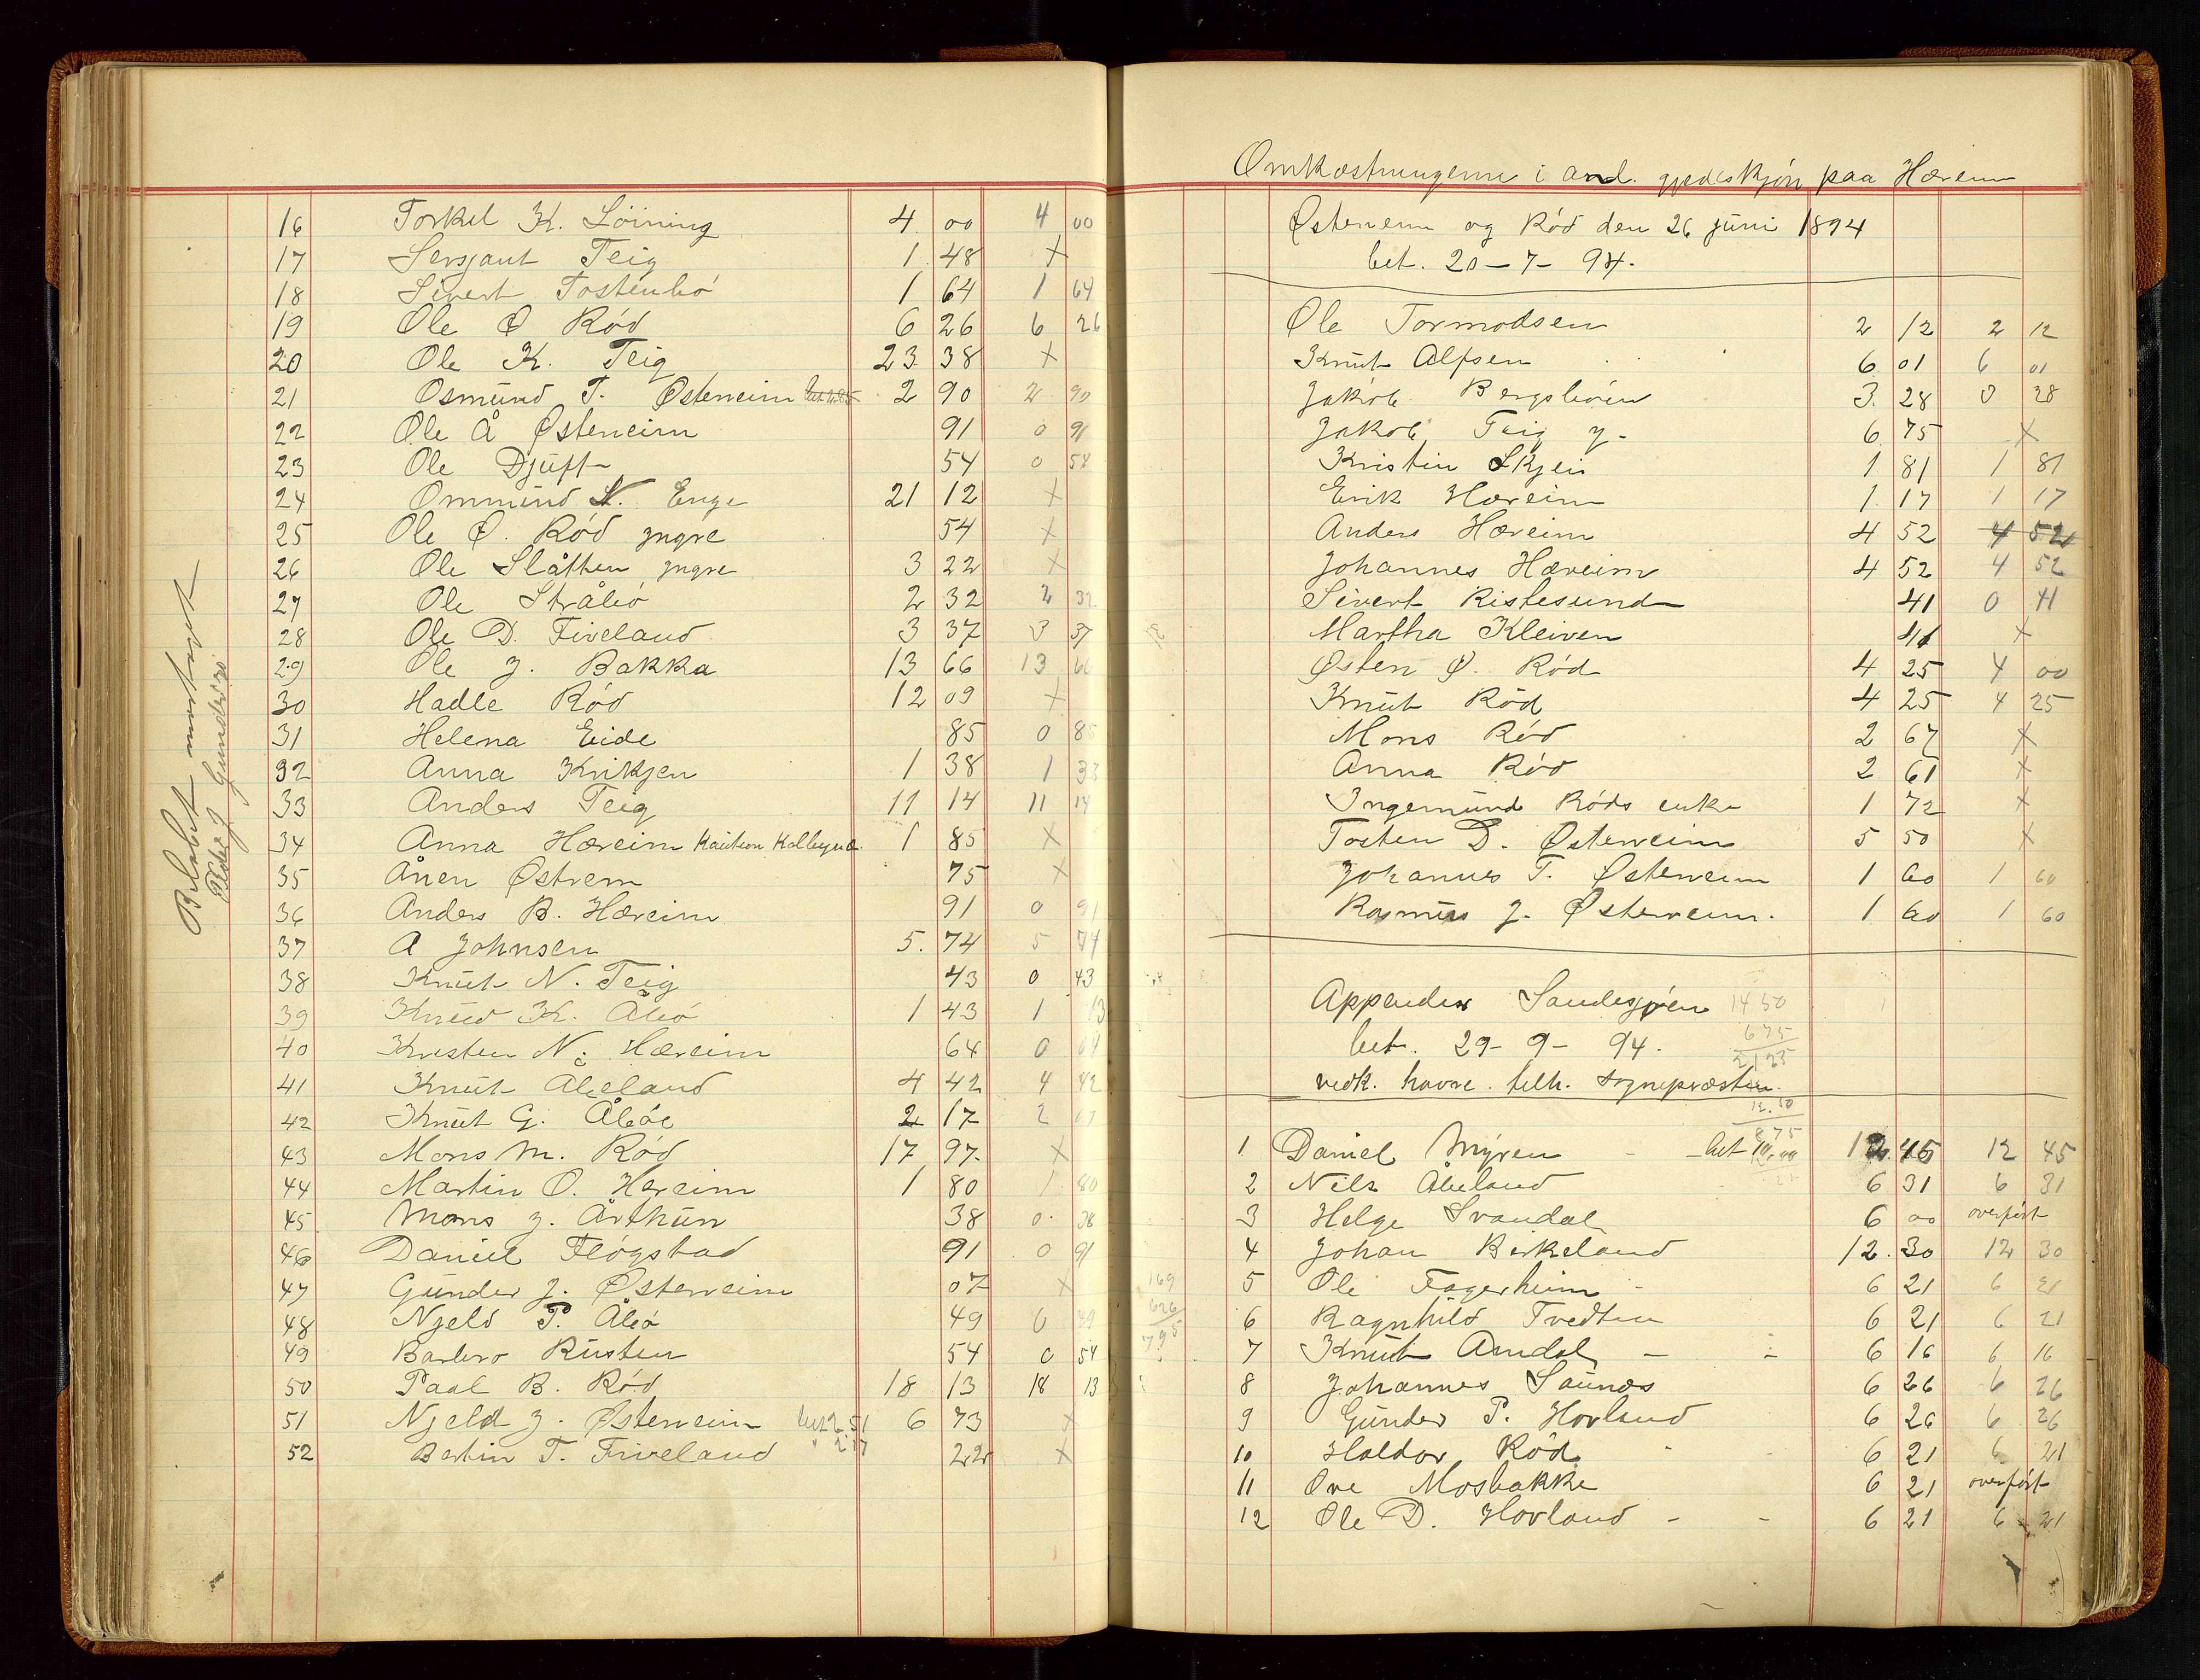 Beløbet mottaget
Peder J Gundersrø
16 Torkel K. Löining 4 00 4 00
17 Sersjant Teig 1 48 X
18 Sivert Tostenbö 1 64 1 64
19 Ole Ø Röd 6 26 6 26
20 Ole K. Teig 23 38 X
21 Osmund T. Østerveim 2 90 2 90
22 Ole Å Østerveim 91 0 91
23 Ole Djuft 54 0 54
24 Ommund N. Enge 21 12 X
25 Ole Ø. Röd yngre 54 X
26 Ole Slåtten yngre 3 22 X
27 Ole Stråbö 2 32 2 32
28 Ole D. Fiveland 3 37 3 37
29 Ole J. Bakka 13 66 13 66
30 Hadle Röd 12 09 X
31 Helena Eide 85 0 85
32 Anna Krikjen 1 38 1 38
33 Anders Teig 11 14 11 14
34 Anna Hæreim 1 85 X
35 Ånen Østrem 75 X
36 Anders B. Hæreim 91 0 91
37 A Johnsen 5. 74 5 74
38 Knut N. Teig 43 0 43
39 Knud K. Åbö 1 43 1 13
40 Kristen N. Hæreim 64 0 64
41 Knut Åbeland 4 42 4 42
42 Knut G. Åböe 2 17 2
43 Mons M. Röd 17 97 X
44 Martin O. Hereim 1 80 1 80
45 Mons J. Årthun 38 0. 38
46 Daniel Flögstad 91 0 91
47 Gunder J. Østerveim 07 X
48 Njeld P. Åbö 49 0 49
49 Barbro Rusten 54 0 54
50 Paal B. Röd 18 13 18 13
51 Njeld J. Østerveim bet 2 51 6 73 X
" 2 17
52 Bertin T. Friveland 22 X
Omkostningerne i and. gjerdeskjön paa Hæreim
Østerveim og Röd den 26 juni 1894
bet. 20-7-94.
Ole Tormodsen 2 12 2 12
Knut Alfsen 6 01 6 01
Jakob Bergslien 3 28 3 28
Jakob Teig y. 6 75 X
Kristin Skjei 1 81 1 81
Erik Hæreim 1 17 1 17
Anders Hæreim 4 52 4 52
Johannes Hæreim 4 52 4 52
Sivert Ristesund 41 0 41
Martha Kleiven 41 X
Østen Ø. Röd 4 25 4 00
Knut Röd 4 25 4 25
Mons Röd 2 67 X
Anna Röd 2 61 X
Ingemund Röds enke 1 72 X
Tosten D. Østerveim 5 50 X
Johannes T. Østerveim 1 60 1 60
Rasmus J. Østerveim. 1 60 1 60
Appendix Sandesjöen 14 50
bet. 29-9-94. 6 75
21 25
vedk. havre tilh. sognepræsten.
12.50
8 75
1 Daniel Myren - bet 12 45 12 45
2 Nils Åbeland 6 31 6 31
3 Helge Svandal 6 00 overfört
4 Johan Birkeland 12. 30 12 30
5 Ole Fagerheim 6 21 6 21
6 Ragnhild Tvedten 6 21 6 21
7 Knut Amdal 6 16 6 16
8 Johannes Saunes 6 26 6 26
9 Gunder P. Hovland 6 26 6 26
10 Haldor Röd 6 21 6 21
11 Ove Mosbakke 6 21 overfört
12 Ole D. Hovland 6 21 6 21
169
626
795